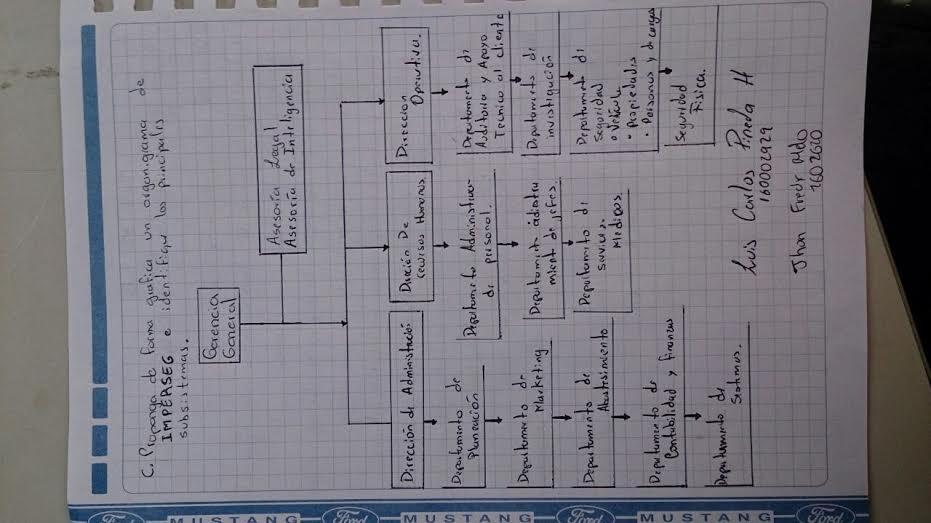 C. Propanga de forma grafica un organigrama de
IMPERSEG e identifique los principales
subsistemas.
Gerencia
General
Asesoría Legal
Asesoría de Inteligencia
Dirección de Administració
Departamento de
planeación
Departamento de
Marketing
Departamento de
Abastesimiento
Departamento de
Contabilidad y finanzas
Departamento de
Sistemas.
Dirección De
recursos Humanos.
Departamento Administrativo
de personal.
Departamento adiestra
miento de jefes.
Departamento di
servicios.
Medicos.
Direccion
Operativa.
Departamento di
Auditoria y Apoyo
Tecnico al cliente
Departamento di
investigación
Departamento di
Seguridad
Vehiculo
• Propiedades
• Personas y de cargas
Seguridad
Fisica.
Luis Carlos Pineda H
160002929
Jhon Fredy
1602620
Ford MUSTANG Ford MUSTANG Ford MUSTANG Ford